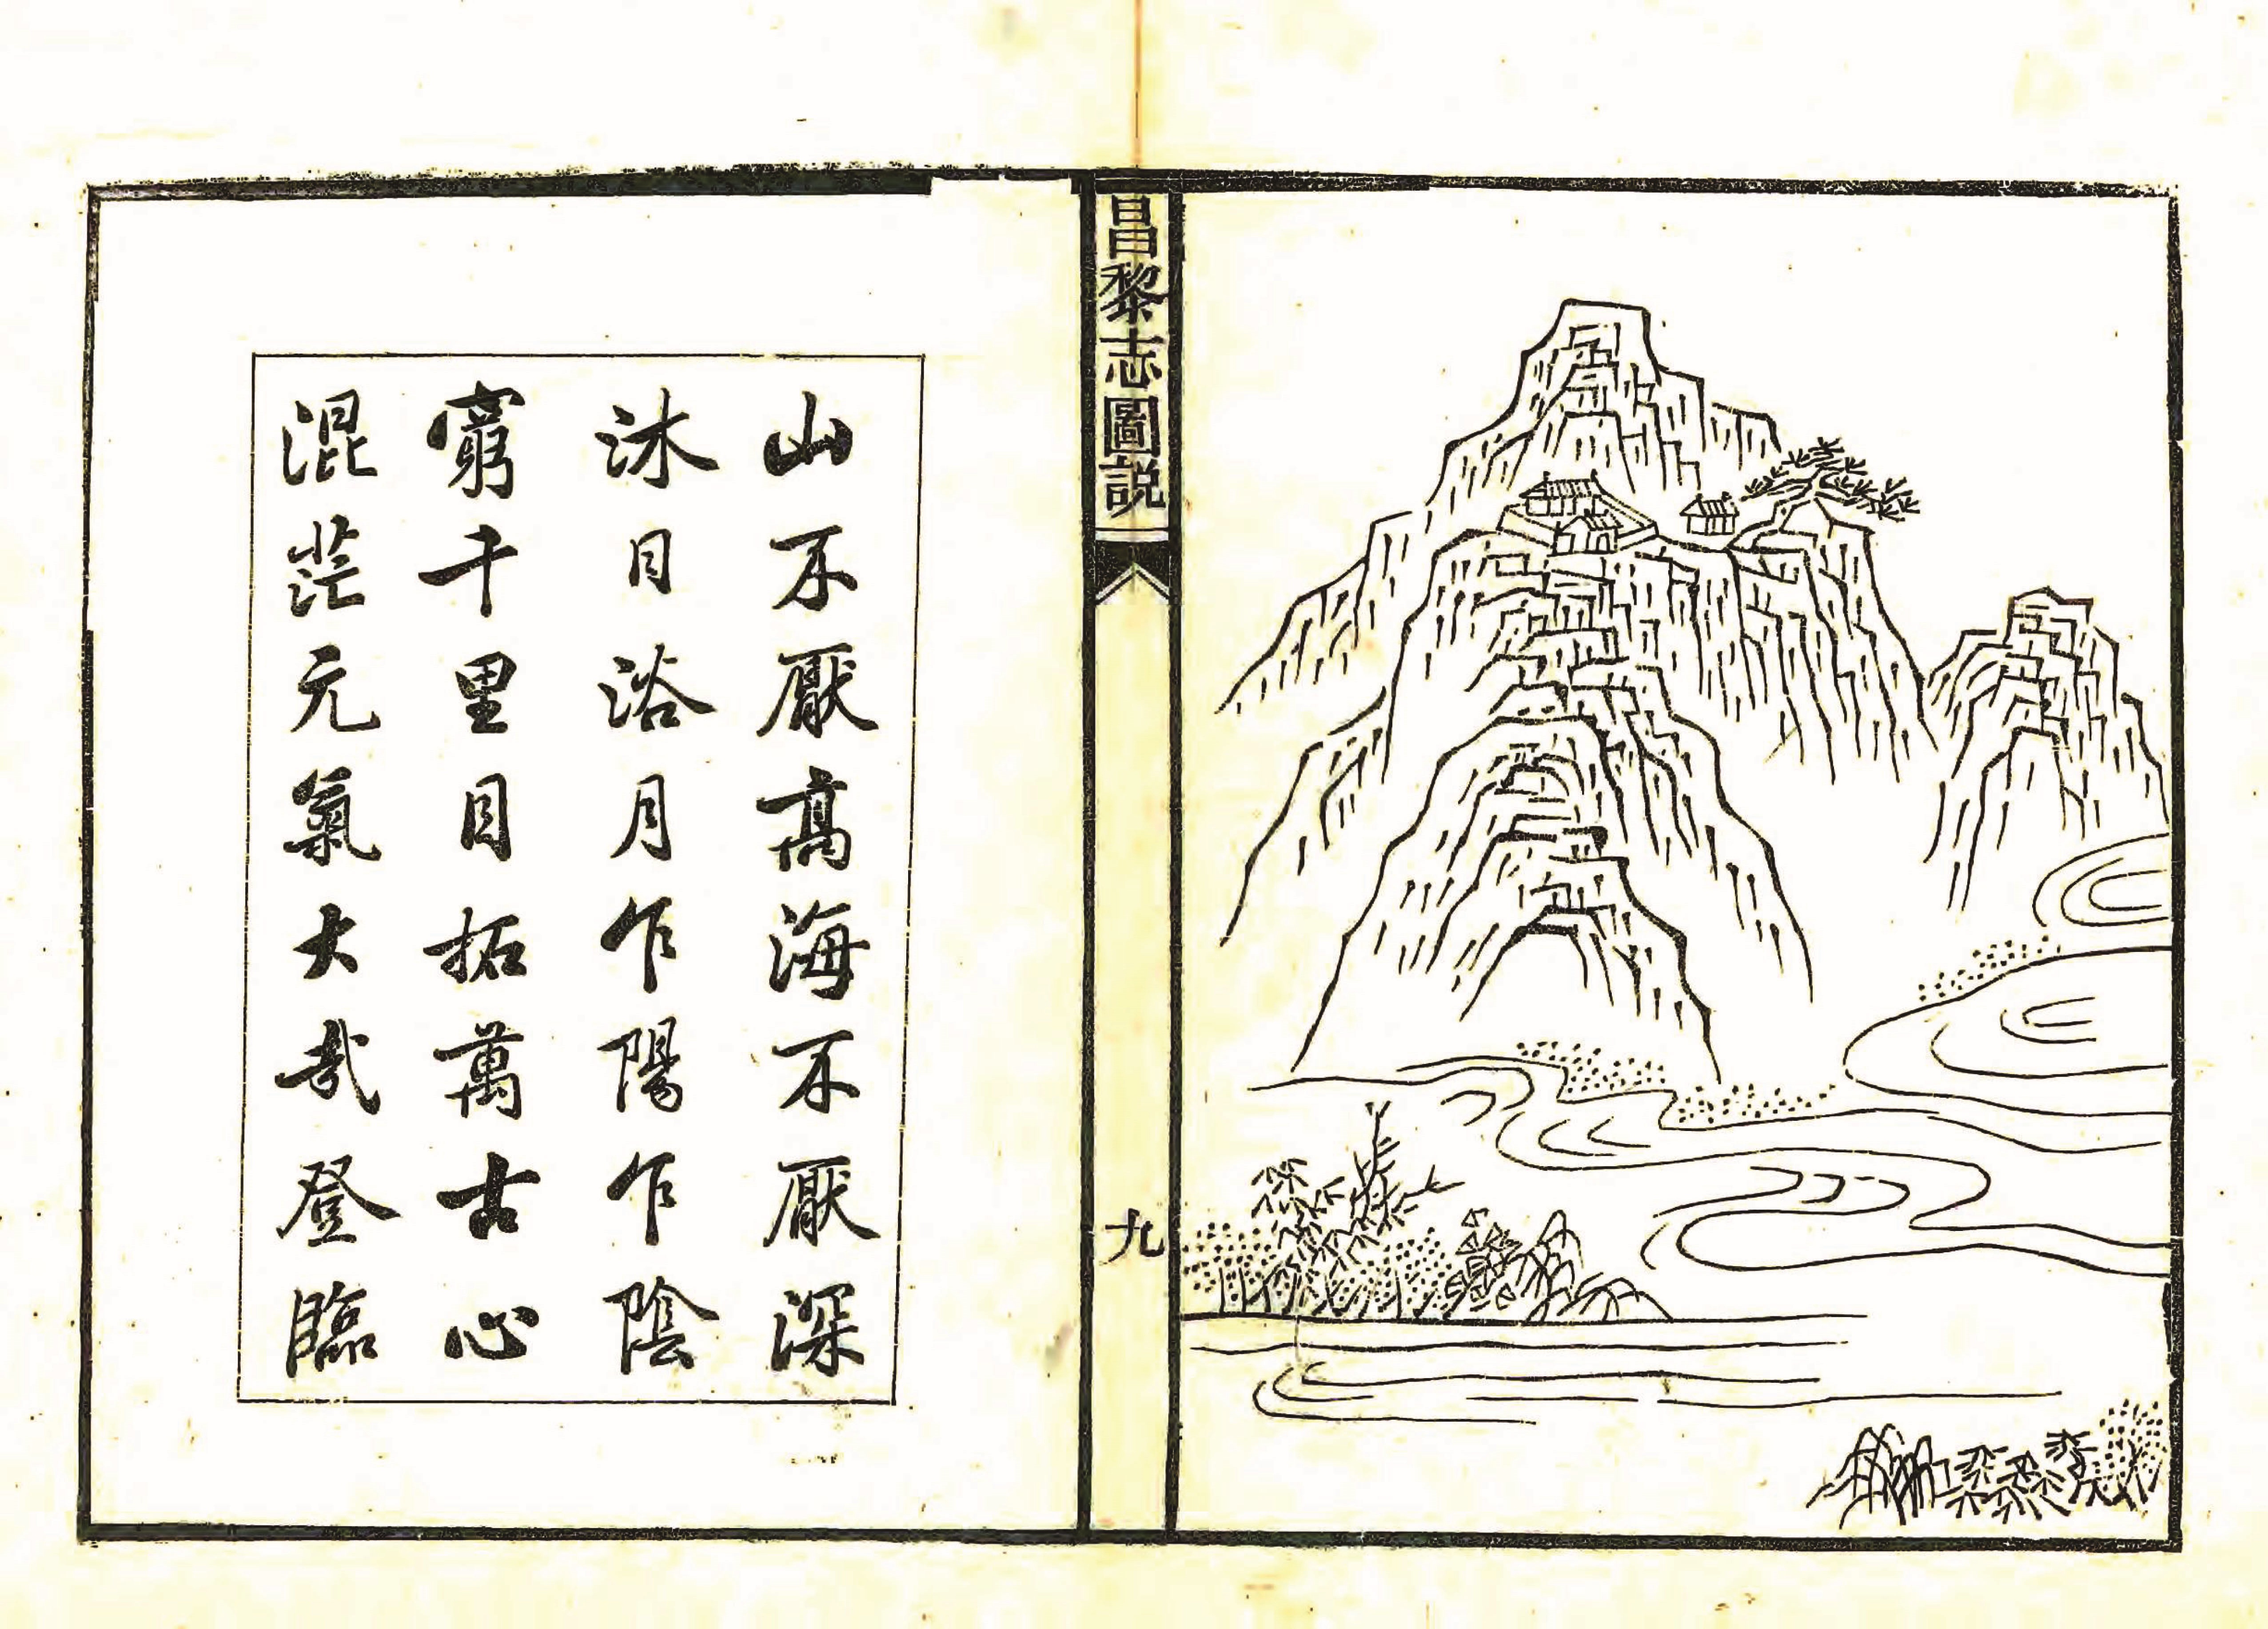 昌黎志圖説
九
山不厭高海不厭深
沐日浴月乍陽乍陰
窮千里目拓萬古心
混茫元氣大哉登臨